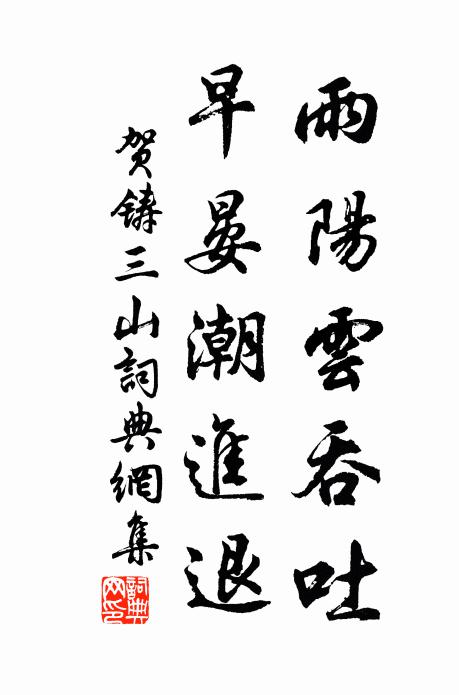 雨陽雲吞吐
早晏潮進退
贺鋳三山詞典網集
詞典网印